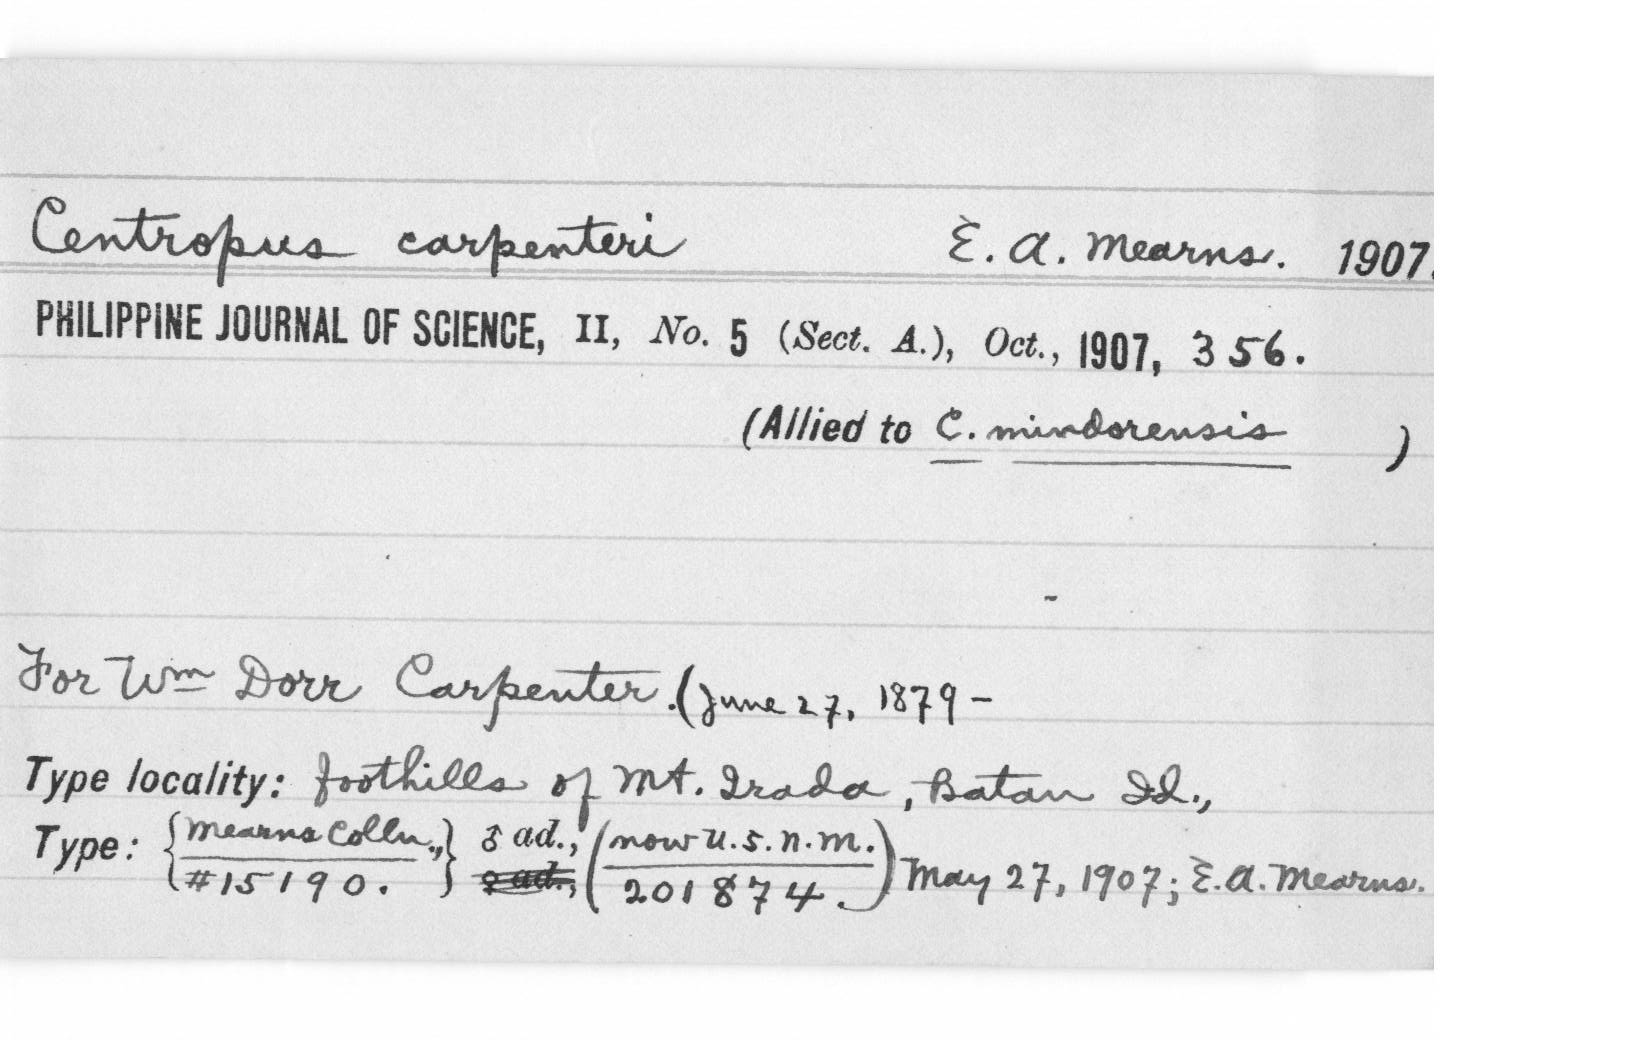 Centropus carpenteri E. A. Mearns. 1907.
PHILIPPINE JOURNAL OF SCIENCE, II, No. 5 (Sect. A.), Oct., 1907, 356.
(Allied to C. mindorensis )
For Wm Dorr Carpenter. (June 27, 1879 –
Type locality: foothills of Mt. Irada, Batan Id.,
Type: {Mearns Colln., #15190.} ♂ ad., ♀ ad., (now U.S.N.M. 201874.) May 27, 1907; E. A. Mearns.